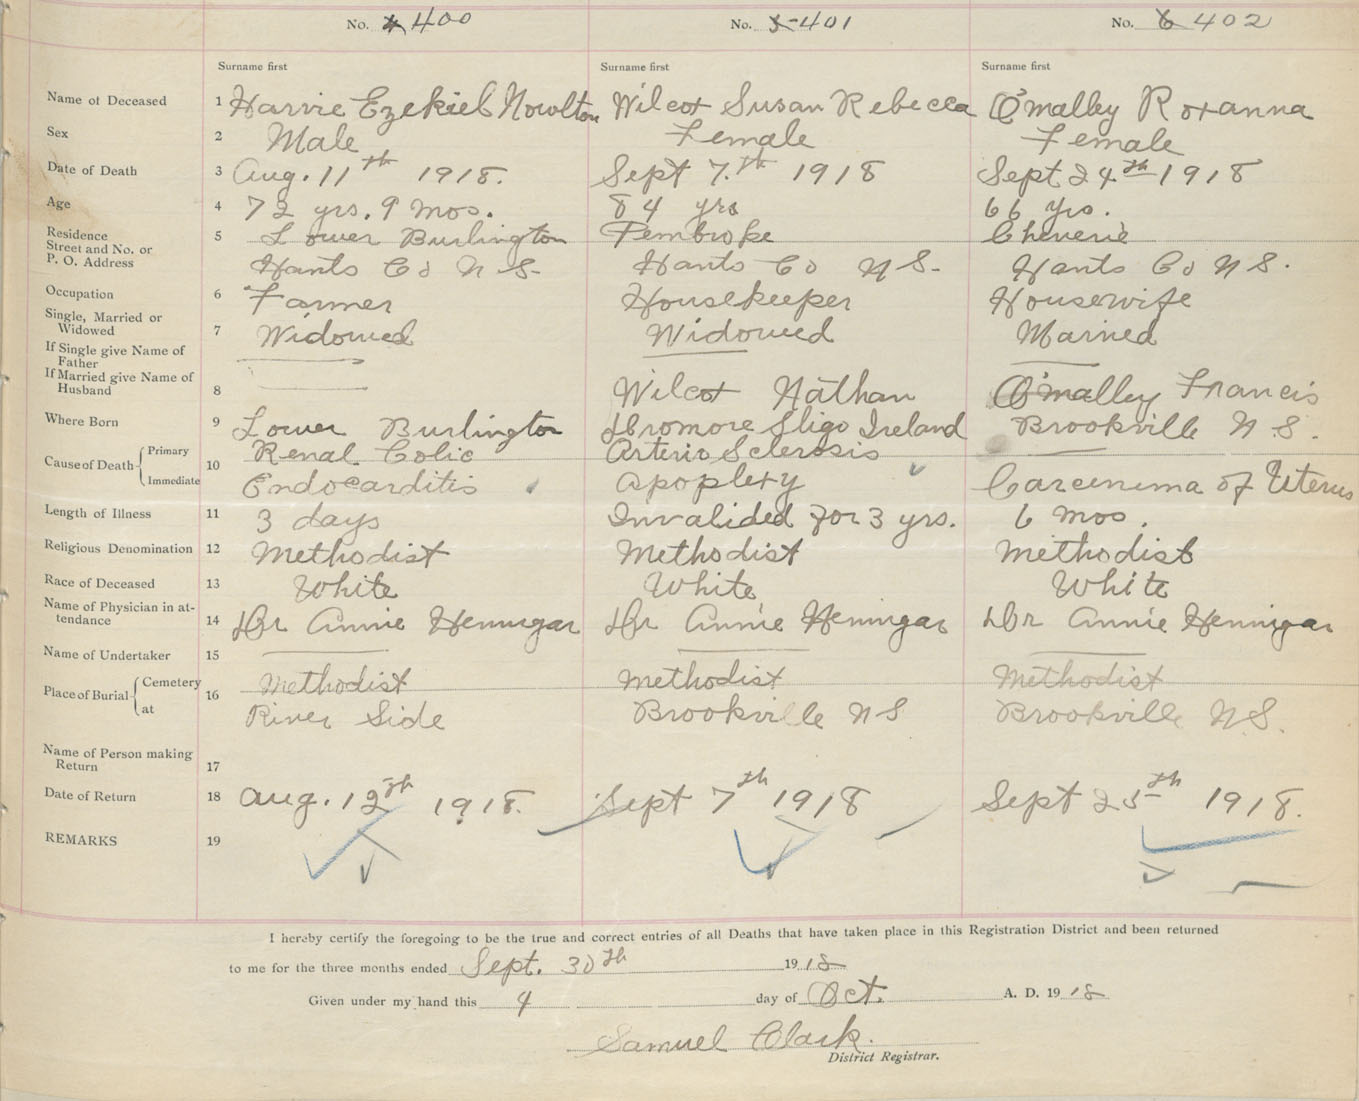 No. 4 400 No. 5 401 No. 6 402
Surname first Surname first Surname first
Name of Deceased 1 Harvie Ezekiel Nowlton Wilcox Susan Rebecca O'malley Roxanna
Sex 2 Male Female Female
Date of Death 3 Aug. 11th 1918. Sept 7.th 1918 Sept 24th 1918
Age 4 72 yrs. 9 mos. 84 yrs 66 yrs.
Residence 5 Lower Burlington Pembroke Cheverie
Street and No. or
P. O. Address Hants Co N S- Hants Co N S- Hants Co N S.
Occupation 6 Farmer Housekeeper Housewife
Single, Married or
Widowed 7 Widowed Widowed Married
If Single give Name of
Father
If Married give Name of
Husband 8 Wilcox Nathan O'malley Francis
Where Born 9 Lower Burlington Dromore Sligo Ireland Brookville N.S.
Cause of Death Primary 10 Renal Colic Arterio Sclerosis
Immediate Endocarditis apoplexy Carcenima of Uterus
Length of Illness 11 3 days Invalided for 3 yrs. 6 mos.
Religious Denomination 12 Methodist Methodist Methodist
Race of Deceased 13 White White White
Name of Physician in at-
tendance 14 Dr Annie Hennigar Dr Annie Hennigar Dr Annie Hennigar
Name of Undertaker 15
Place of Burial Cemetery 16 Methodist Methodist Methodist
at River Side Brookville N S Brookville N.S.
Name of Person making
Return 17
Date of Return 18 Aug. 12th 1918. Sept 7th 1918 Sept 25th 1918.
REMARKS 19
I hereby certify the foregoing to be the true and correct entries of all Deaths that have taken place in this Registration District and been returned
to me for the three months ended Sept. 30th 1918
Given under my hand this 4 day of Oct. A. D. 1918
Samuel Clark.
District Registrar.